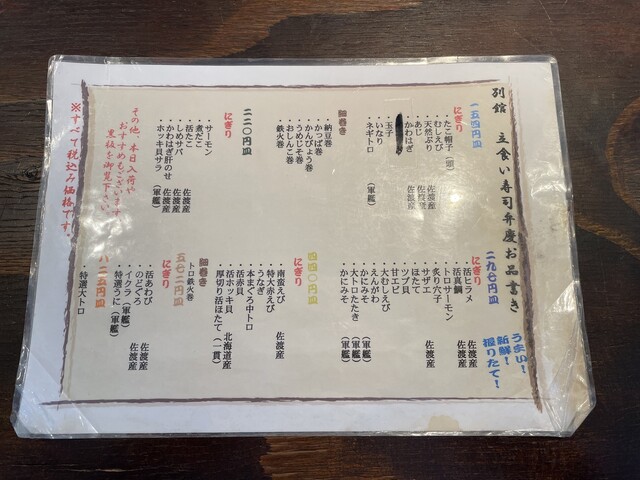 別館 立食い寿司弁慶お品書き
うまい！
新鮮！
握りたて！
一五四円皿
にぎり
・たこ帽子（頭）
・むしえび
・天然ぶり 佐渡産
・かわはぎ 佐渡産
・あじ 佐渡産
・玉子
・いなり
・ネギトロ （軍艦）
細巻き
・納豆巻
・かっぱ巻
・かんぴょう巻
・うめじそ巻
・おしんこ巻
・鉄火巻
二二〇円皿
にぎり
・サーモン
・煮だこ
・活たこ 佐渡産
・しめサバ 佐渡産
・かわはぎ肝のせ 佐渡産
・ホッキ貝サラ （軍艦）
その他、本日入荷や
おすすめもございます
黒板を御覧下さい。
※すべて税込み価格です。
二九七円皿
にぎり
・活ヒラメ 佐渡産
・活真鯛 佐渡産
・トロサーモン
・炙り穴子
・サザエ 佐渡産
・ほたて
・ツブ貝
・甘エビ
・大むしえび
・えんがわ
・かにみそ （軍艦）
・大トロたたき （軍艦）
・かにみそ （軍艦）
四四〇円皿
にぎり
・南蛮えび 佐渡産
・特大赤えび
・うなぎ
・本まぐろ中トロ
・活赤貝
・活ホッキ貝 北海道産
・厚切り活ほたて（一貫）
細巻き
・トロ鉄火巻
五七二円皿
にぎり
・活あわび 佐渡産
・のどぐろ 佐渡産
・イクラ（軍艦）
・特選うに（軍艦）
八二五円皿
・特選大トロ